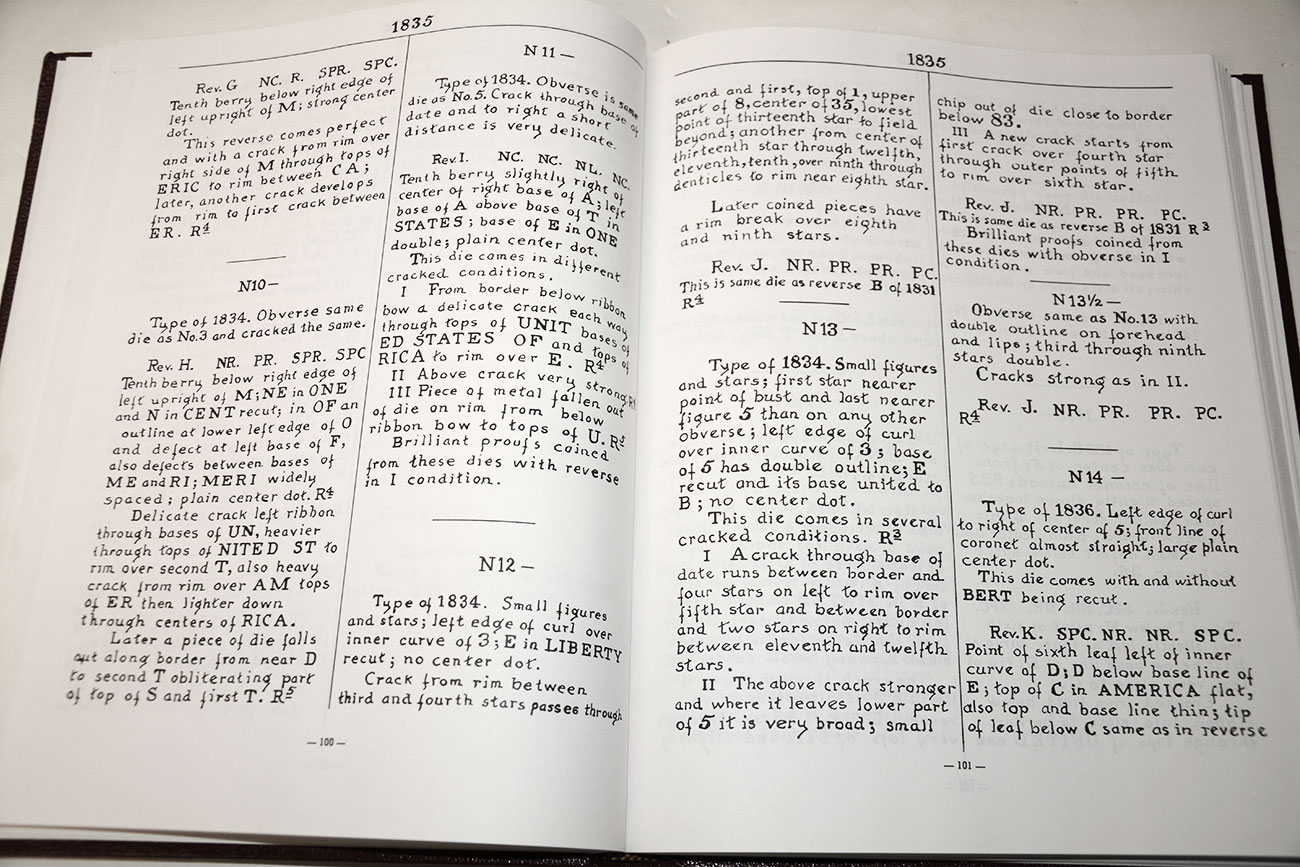 1835
Rev. G NC. R. SPR. SPC.
Tenth berry below right edge of
left upright of M; strong center
dot.
This reverse comes perfect
and with a crack from rim over
right side of M through tops of
ERIC to rim between CA;
later, another crack develops
from rim to first crack between
ER. R4
N10—
Type of 1834. Obverse same
die as No.3 and cracked the same.
Rev. H. NR. PR. SPR. SPC
Tenth berry below right edge of
left upright of M; NE in ONE
and N in CENT recut; in OF an
outline at lower left edge of O
and defect at left base of F,
also defects between bases of
ME and RI; MERI widely
spaced; plain center dot. R4
Delicate crack left ribbon
through bases of UN, heavier
through tops of NITED ST to
rim over second T, also heavy
crack from rim over AM tops
of ER then lighter down
through centers of RICA.
Later a piece of die falls
out along border from near D
to second T obliterating part
of top of S and first T. R5
N11—
Type of 1834. Obverse is same
die as No.5. Crack through base of
date and to right a short
distance is very delicate.
Rev. I. NC. NC. NL. NC.
Tenth berry slightly right of
center of right base of A; left
base of A above base of T in
STATES; base of E in ONE
double; plain center dot.
This die comes in different
cracked conditions.
I From border below ribbon
bow a delicate crack each way
through tops of UNIT bases of
ED STATES OF and tops of
RICA to rim over E. R4
II Above crack very strong. R4
III Piece of metal fallen out
of die on rim from below
ribbon bow to tops of U. R5
Brilliant proufs coined
from these dies with reverse
in I condition.
N12—
Type of 1834. Small figures
and stars; left edge of curl over
inner curve of 3; E in LIBERTY
recut; no center dot.
Crack from rim between
third and fourth stars passes through
—100—
1835
second and first, top of 1, upper
part of 8, center of 35, lowest
point of thirteenth star to field
beyond; another from center of
thirteenth star through twelfth,
eleventh, tenth, over ninth through
denticles to rim near eighth star.
Later coined pieces have
a rim break over eighth
and ninth stars.
Rev. J. NR. PR. PR. PC.
This is same die as reverse B of 1831
R4
N13—
Type of 1834. Small figures
and stars; first star nearer
point of bust and last nearer
figure 5 than on any other
obverse; left edge of curl
over inner curve of 3; base
of 5 has double outline; E
recut and its base united to
B; no center dot.
This die comes in several
cracked conditions. R3
I A crack through base of
date runs between border and
four stars on left to rim over
fifth star and between border
and two stars on right to rim
between eleventh and twelfth
stars.
II The above crack stronger
and where it leaves lower part
of 5 it is very broad; small
chip out of die close to border
below 83.
III A new crack starts from
first crack over fourth star
through outer points of fifth
to rim over sixth star.
Rev. J. NR. PR. PR. PC.
This is same die as reverse B of 1831 R3
Brilliant proofs coined from
these dies with obverse in I
condition.
N13½—
Obverse same as No.13 with
double outline on forehead
and lips; third through ninth
stars double.
Cracks strong as in II.
Rev. J. NR. PR. PR. PC.
R4
N14—
Type of 1836. Left edge of curl
to right of center of 5; front line of
coronet almost straight; large plain
center dot.
This die comes with and without
BERT being recut.
Rev. K. SPC. NR. NR. SPC.
Point of sixth leaf left of inner
curve of D; D below base line of
E; top of C in AMERICA flat,
also top and base line thin; tip
of leaf below C same as in reverse
—101—